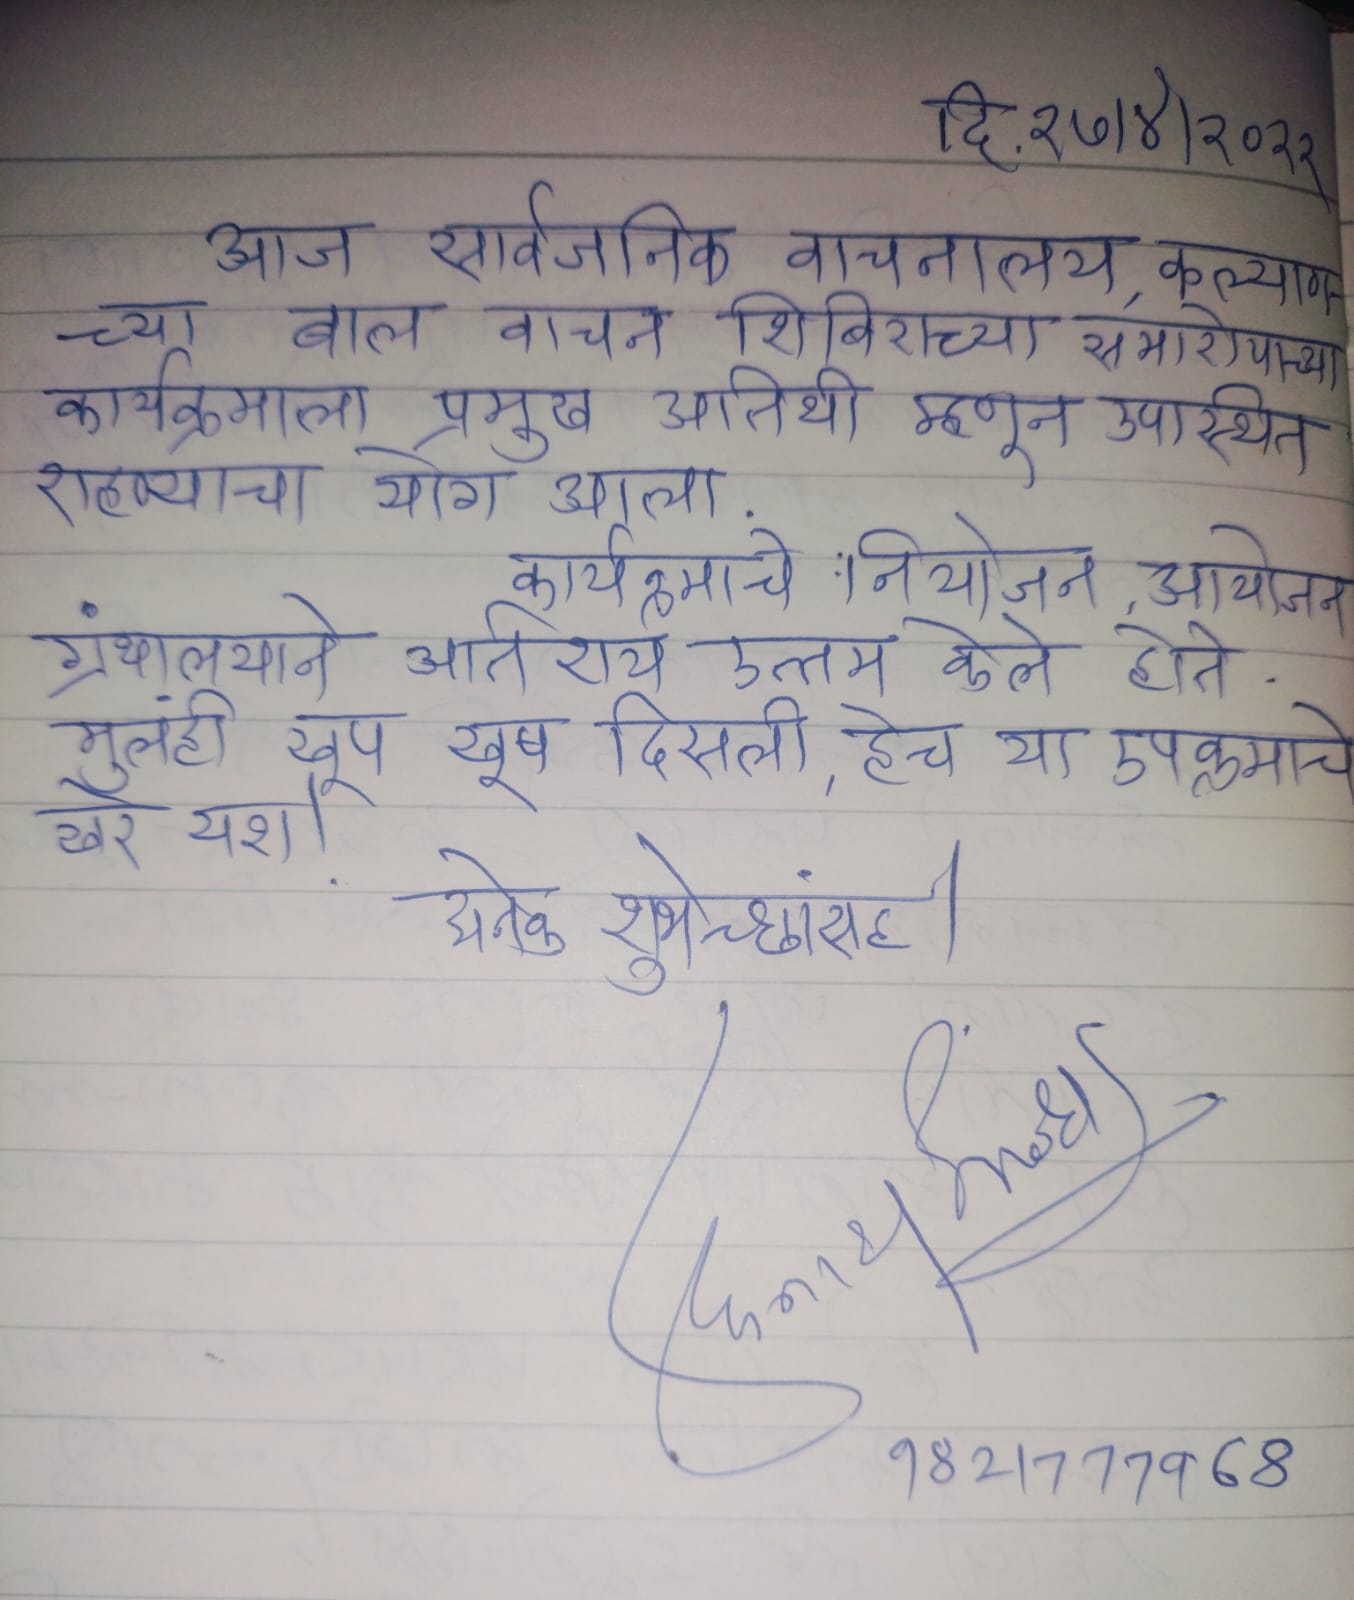 दि. २७/४/२०२२
आज सार्वजनिक वाचनालय, कल्याण
च्या बाल वाचन शिबिराच्या समारोपाच्या
कार्यक्रमाला प्रमुख अतिथी म्हणून उपस्थित
राहण्याचा योग आला.
कार्यक्रमाचे नियोजन, आयोजन
ग्रंथालयाने अतिशय उत्तम केले होते.
मुलंही खूप खूष दिसली, हेच या उपक्रमाचे
खरे यश!
अनेक शुभेच्छांसह!